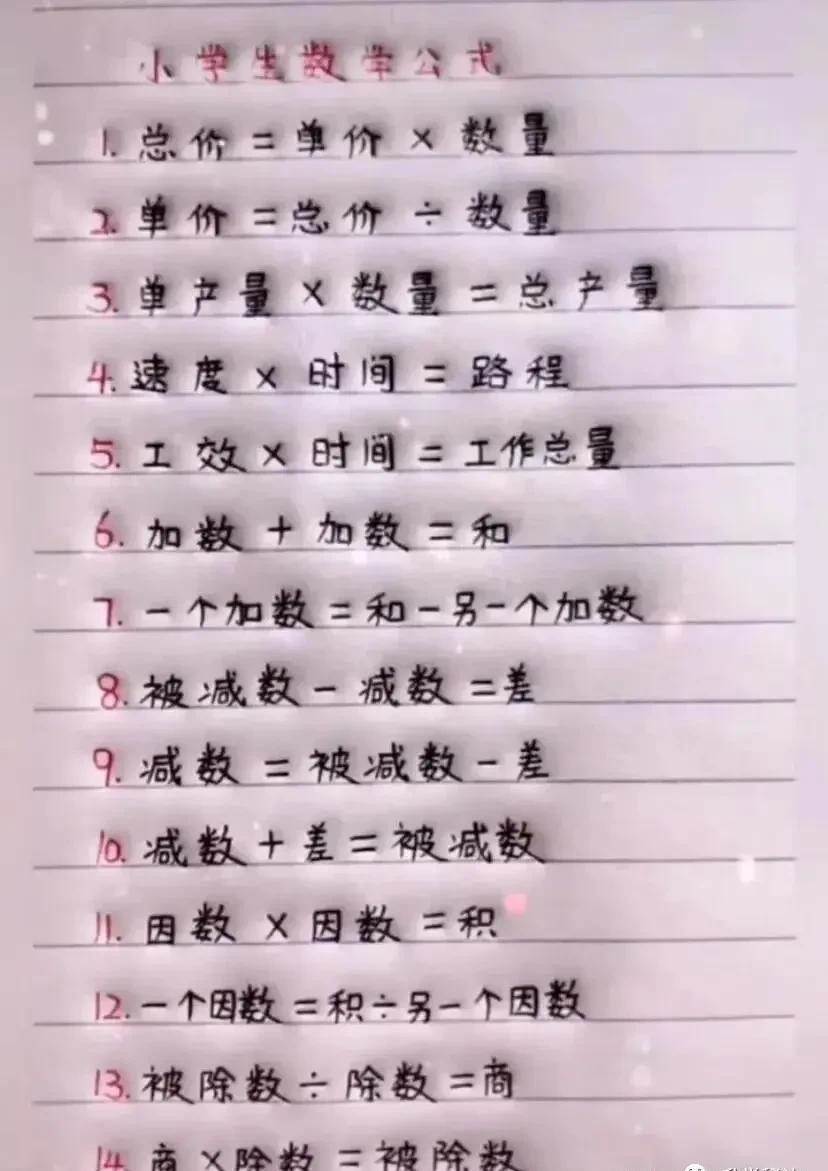 小学生数学公式
1. 总价 = 单价 × 数量
2. 单价 = 总价 ÷ 数量
3. 单产量 × 数量 = 总产量
4. 速度 × 时间 = 路程
5. 工效 × 时间 = 工作总量
6. 加数 + 加数 = 和
7. 一个加数 = 和 - 另一个加数
8. 被减数 - 减数 = 差
9. 减数 = 被减数 - 差
10. 减数 + 差 = 被减数
11. 因数 × 因数 = 积
12. 一个因数 = 积 ÷ 另一个因数
13. 被除数 ÷ 除数 = 商
14. 商 × 除数 = 被除数